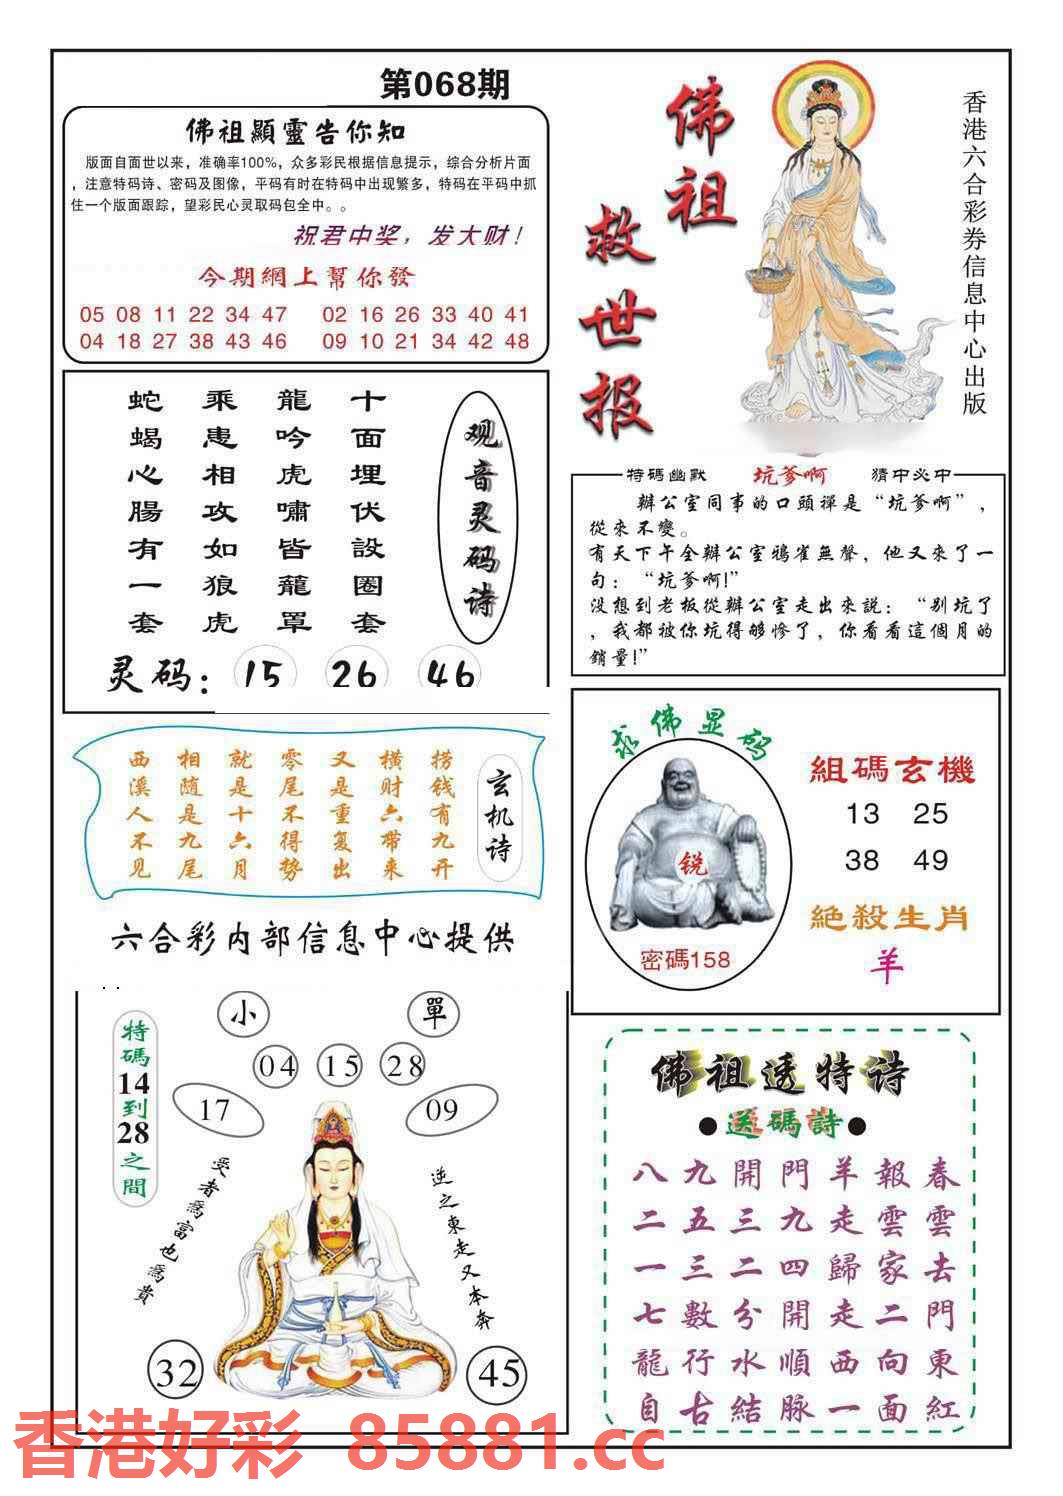 第068期
佛祖顯靈告你知
版面自面世以来，准确率100%，众多彩民根据信息提示，综合分析片面
，注意特码诗、密码及图像，平码有时在特码中出现繁多，特码在平码中抓
住一个版面跟踪，望彩民心灵取码包全中。。
祝君中奖，发大财！
今期網上幫你發
05 08 11 22 34 47 02 16 26 33 40 41
04 18 27 38 43 46 09 10 21 34 42 48
佛祖
救世报
香港六合彩券信息中心出版
观音灵码诗
十面埋伏設圈套
龍吟虎嘯皆籠罩
乘患相攻如狼虎
蛇蝎心腸有一套
灵码：15 26 46
特碼幽默 坑爹啊 猜中必中
辦公室同事的口頭禪是“坑爹啊”，
從來不變。
有天下午全辦公室鴉雀無聲，他又來了一
句：“坑爹啊!”
沒想到老板從辦公室走出來説：“别坑了
，我都被你坑得够惨了，你看看這個月的
銷量!”
玄机诗
捞钱有九开
横财六带来
又是重复出
零尾不得势
就是十六月
相随是九尾
西溪人不见
六合彩内部信息中心提供
求佛显码
锐
密碼158
組碼玄機
13 25
38 49
絶殺生肖
羊
特碼14到28之間
小 單
04 15 28
17 09
受者爲富也爲貴
逆之東走又本奔
32 45
佛祖透特诗
●送碼詩●
八九開門羊報春
二五三九走雲雲
一三二四歸家去
七數分開走二門
龍行水順西向東
自古結脉一面紅
香港好彩 85881.cc